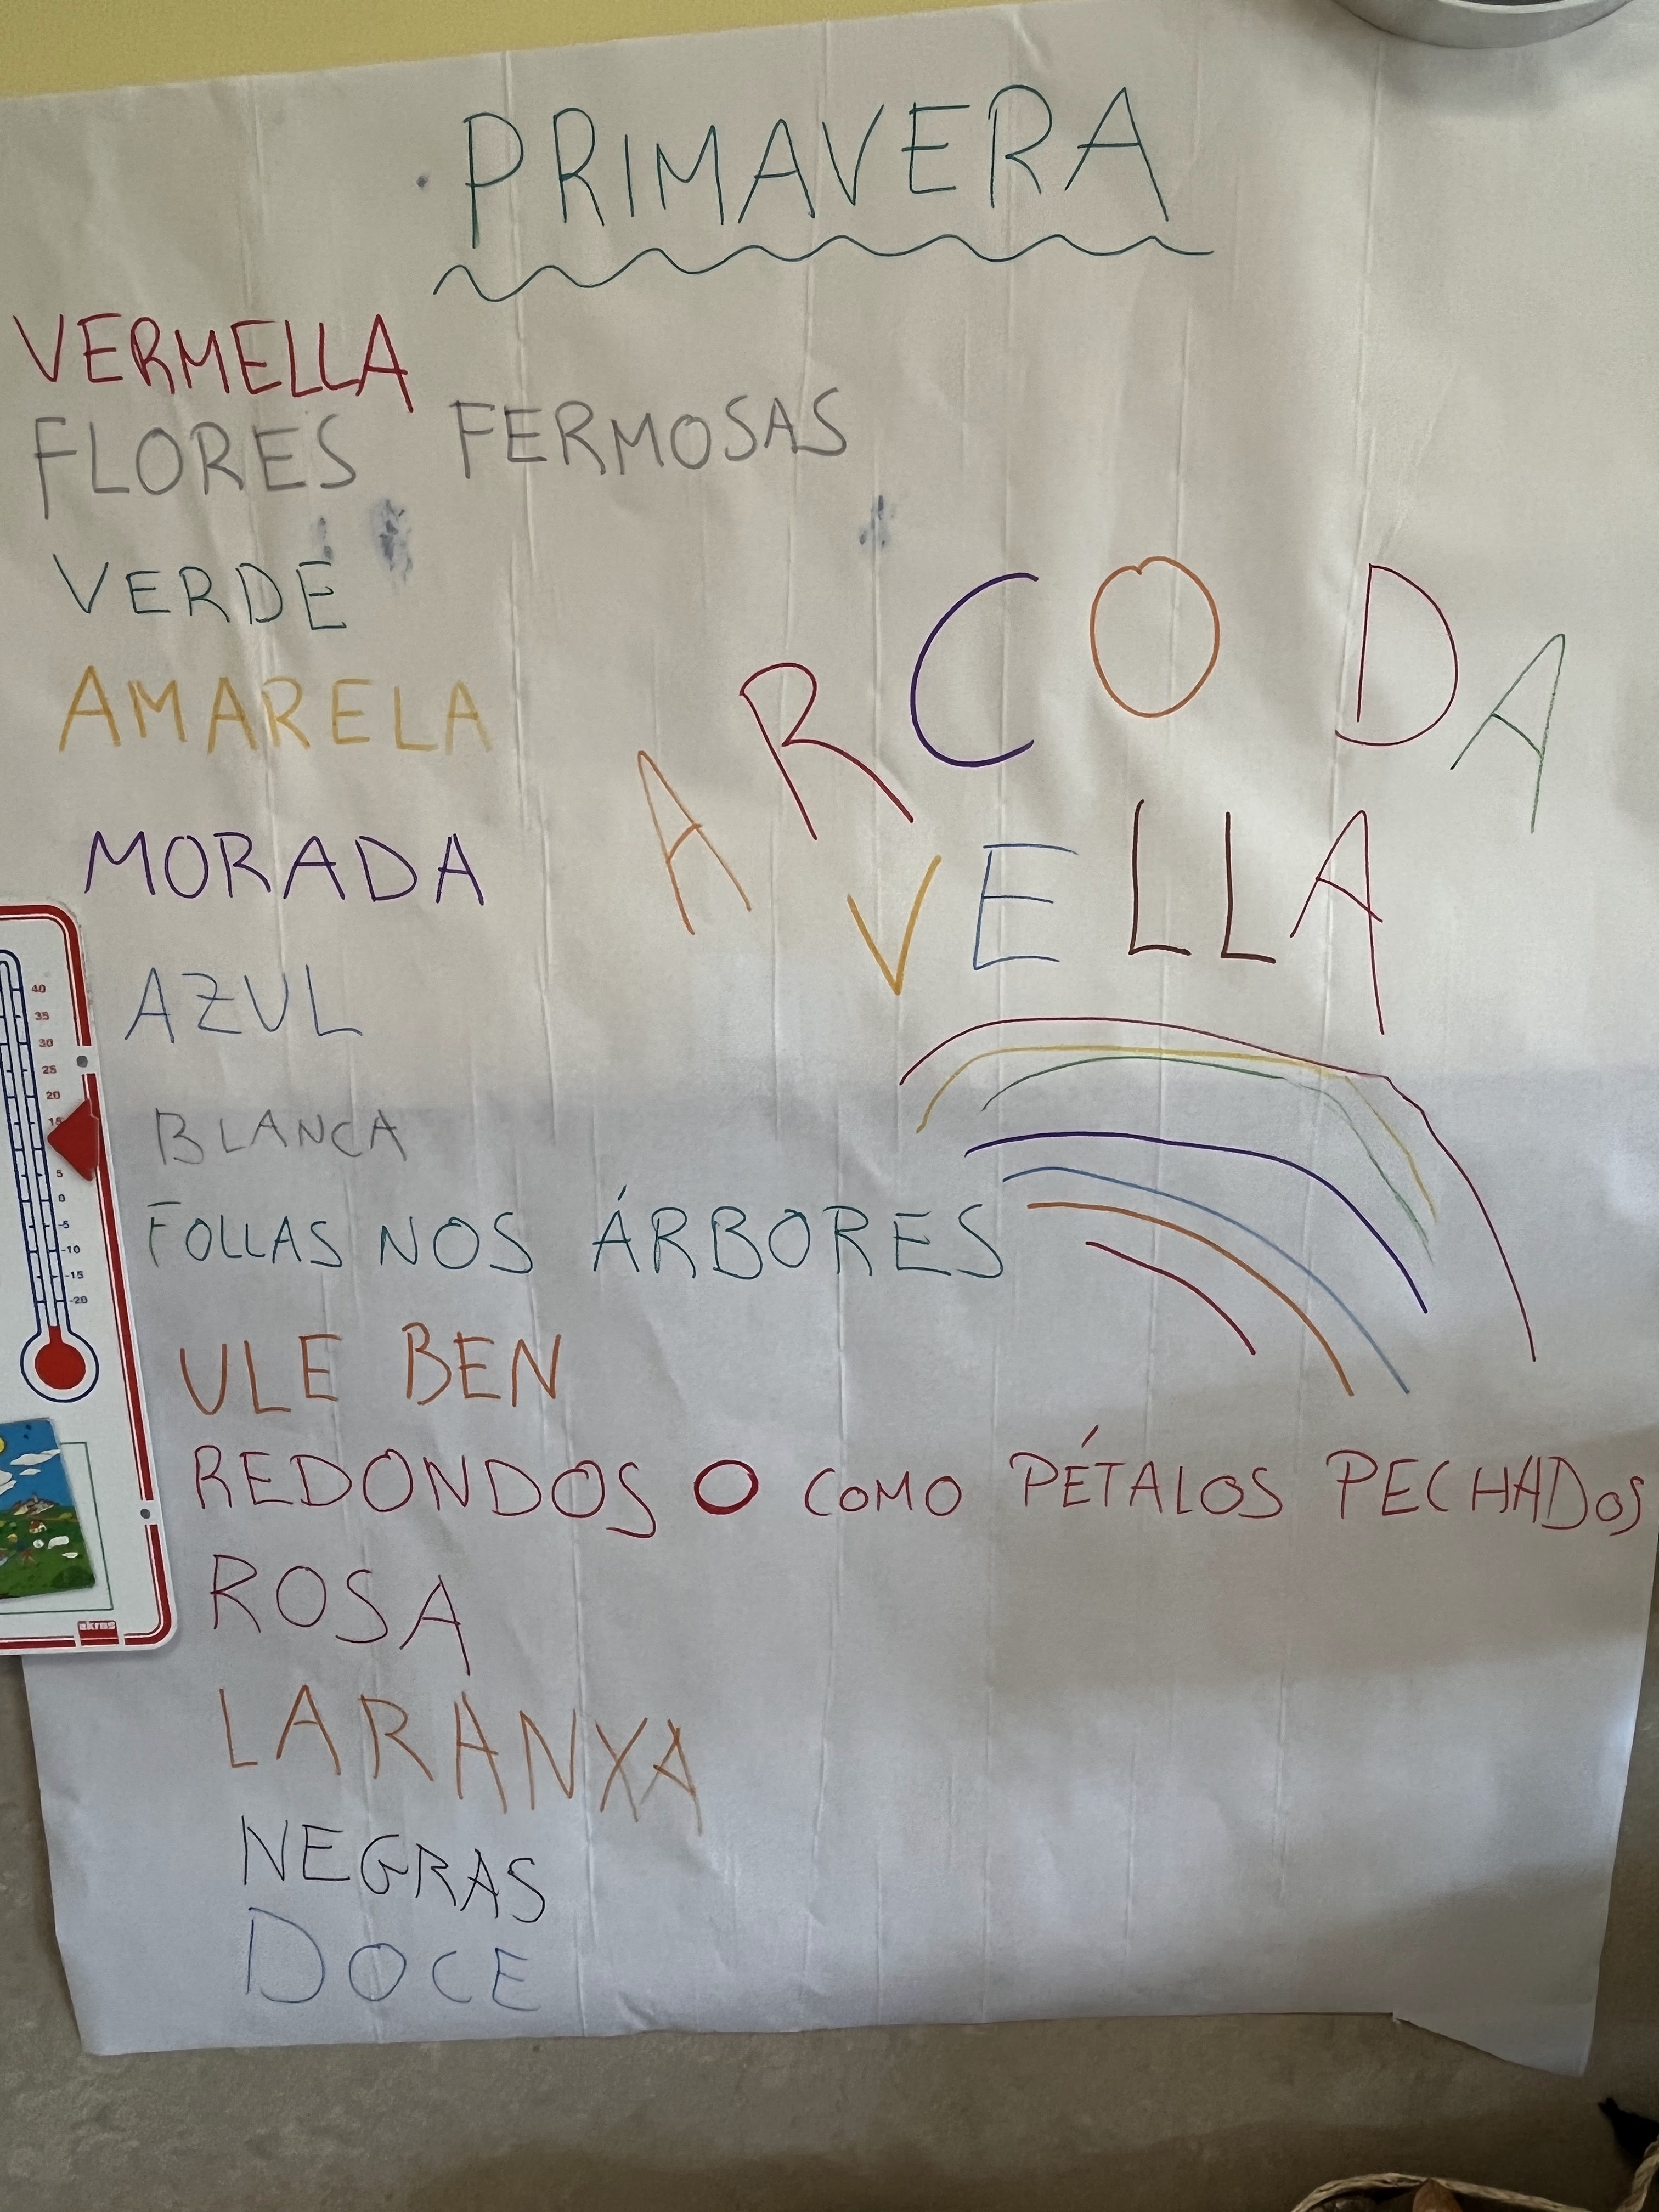 PRIMAVERA
VERMELLA
FLORES FERMOSAS
VERDE
AMARELA
MORADA
AZUL
BLANCA
FOLLAS NOS ÁRBORES
ULE BEN
REDONDOS O COMO PÉTALOS PECHADOS
ROSA
LARANXA
NEGRAS
DOCE
ARCO DA
VELLA
40
35
30
25
20
15
5
0
-5
-10
-15
-20
akros